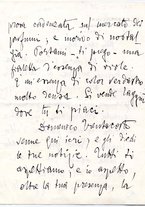 prova condensata sul mercato dei
profumi, e morivo di nostal
gia. Portami - ti prego - una
fialetta d'essenza di viole.
È un'essenza di color verdastro
molto densa. Si vende laggiù
dove tu ti piaci.
Domenico
venne qui ieri; e gli diedi
le tue notizie. Tutti ti
aspettiamo; e io aspetto,
oltre la tua presenza, la